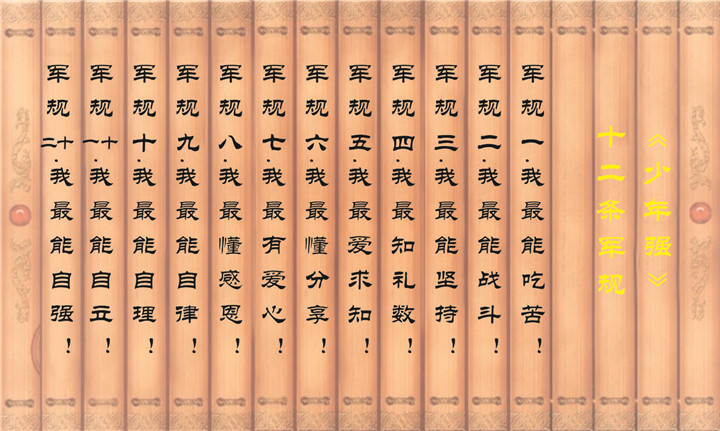 《少年强》
十二条军规
军规一·我最能吃苦！
军规二·我最能战斗！
军规三·我最能坚持！
军规四·我最知礼数！
军规五·我最爱求知！
军规六·我最懂分享！
军规七·我最有爱心！
军规八·我最懂感恩！
军规九·我最能自律！
军规十·我最能自理！
军规十一·我最能自立！
军规十二·我最能自强！